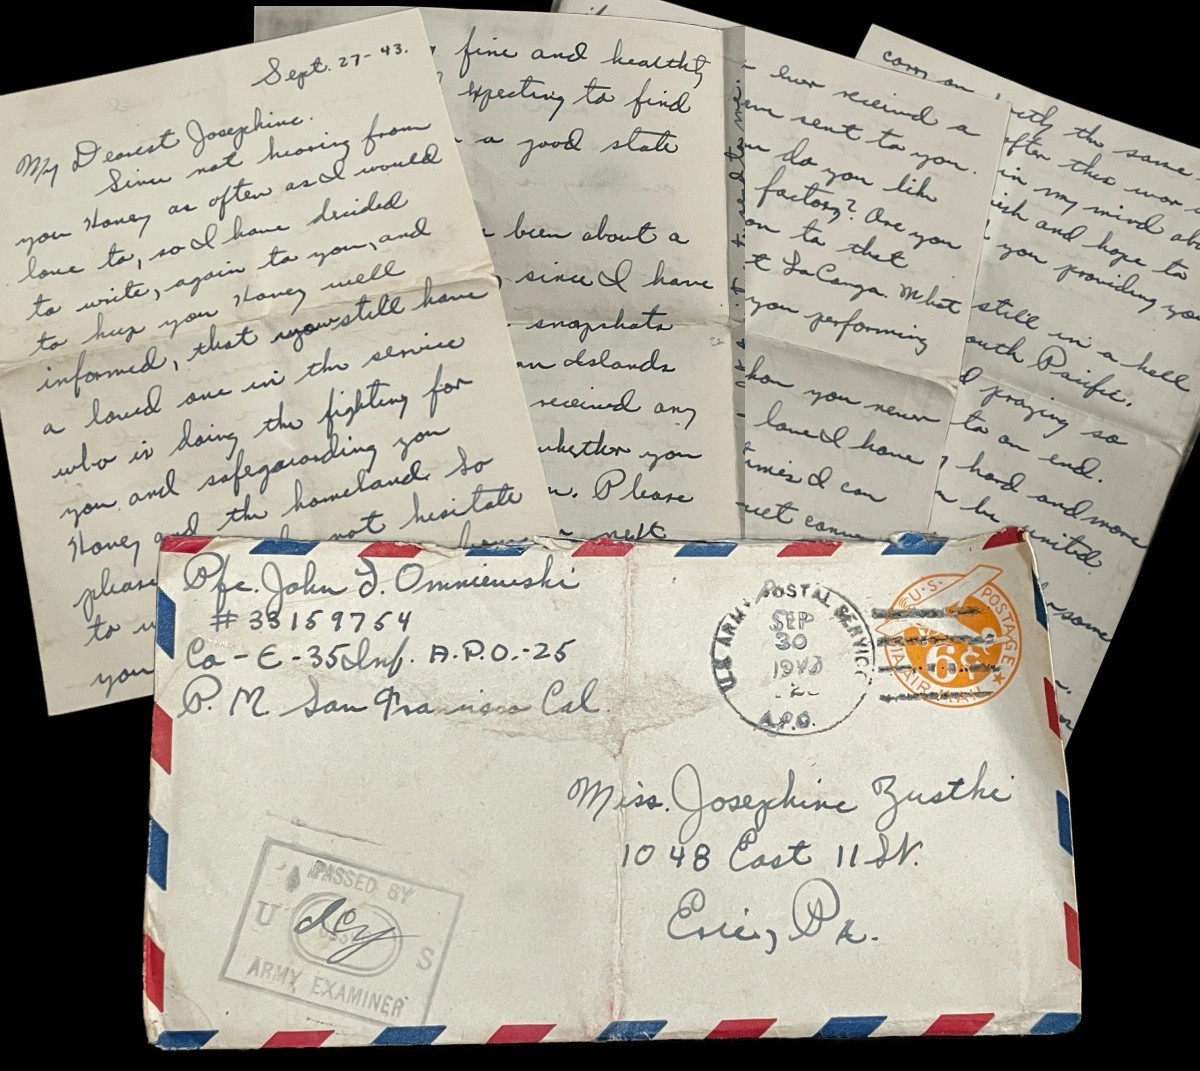 Sept. 27-43.
My Dearest Josephine.
Since not hearing from
you Honey as often as I would
love to, so I have decided
to write, again to you, and
to keep you Honey well
informed, that you still have
a loved one in the service
who is doing the fighting for
you and safegaurding you
Honey and the homeland. So
please not hesitate
to
you
fine and healthy
expecting to find
a good state
been about a
since I have
snapshots
Islands
received any
whether you
Please
ever received a
sent to you.
do you like
factory? Are you
on to that
LaCanga. What
you performing
how you never
love I have
times I can
com on
the same
often this war
in my mind
and hope to
you providing you
still in a hell
outh Pacific.
praying so
to an end.
hard and more
be united
some
Pfc. John I. Omniewski
# 33159754
Co-E-35 Inf. A.P.O.-25
P.M. San Francisco Cal.
U.S. ARMY POSTAL SERVICE
SEP
30
1943
A.P.O.
U.S. POSTAGE
6¢
VIA AIR MAIL
Miss. Josephine Zustki
1048 East 11 St.
Erie, Pa.
PASSED BY
U S
ARMY EXAMINER